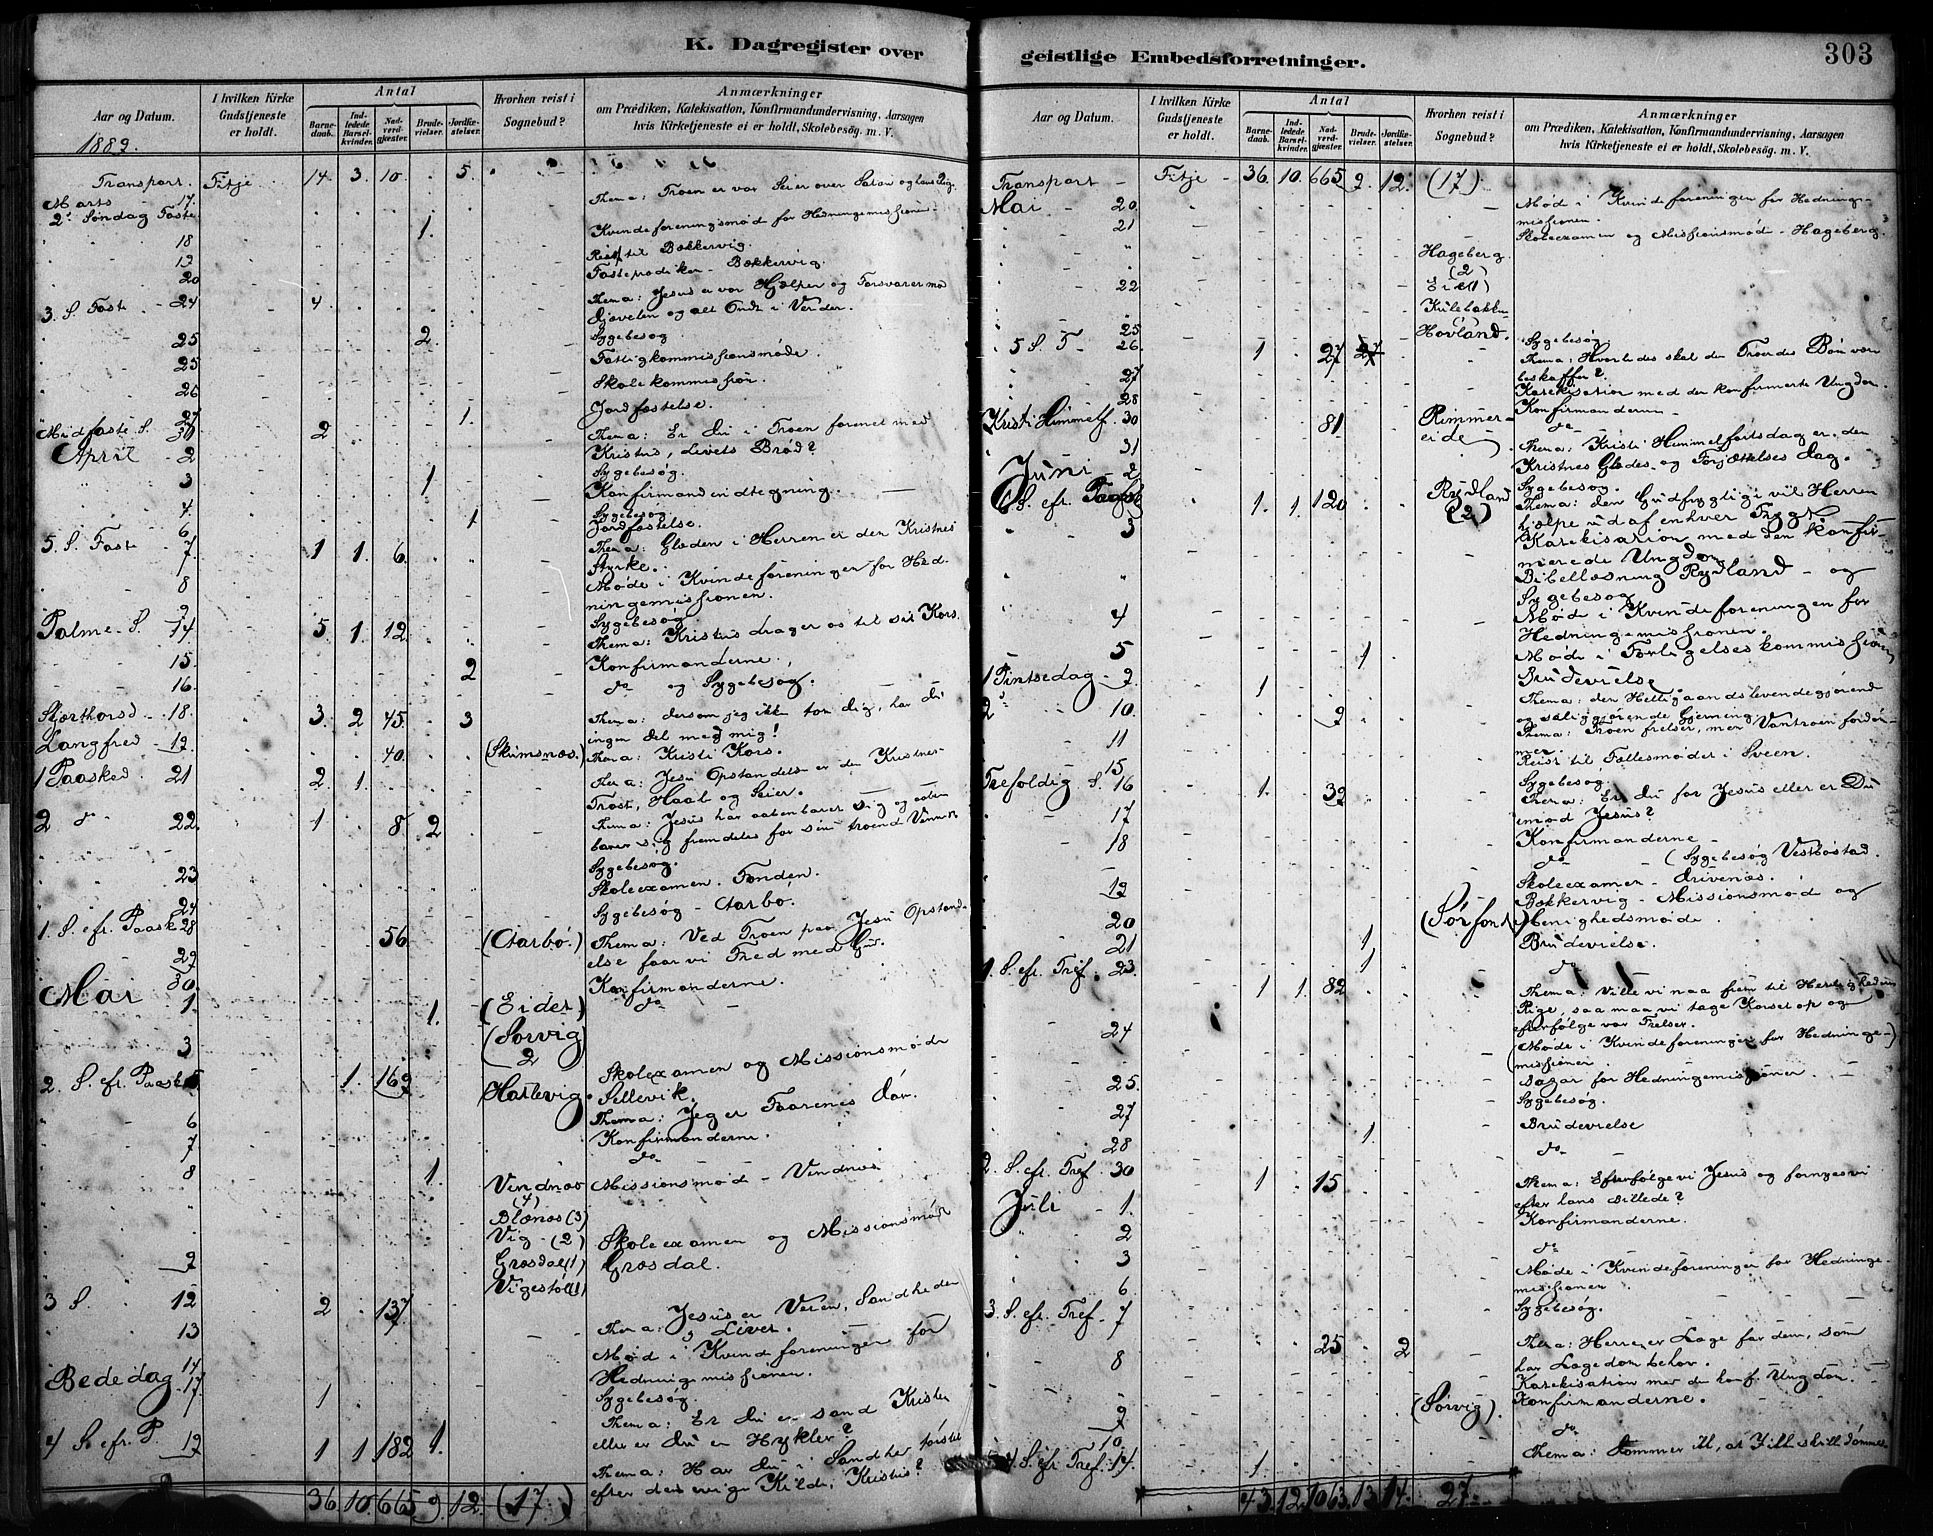 K. Dagregister over
Aar og Datum.
1889.
I hvilken Kirke Gudstjeneste er holdt.
Antal
Barnedaab.
Indledede Barselkvinder.
Nadverdgjæster.
Brudevielser.
Jordfæstelser.
Hvorhen reist i Sognebud?
Anmærkninger
om Prædiken, Katekisation, Konfirmandundervisning, Aarsagen
hvis Kirketjeneste ei er holdt, Skolebesøg. m. V.
Transport. Fitje 14 3 10 5.
Marts 17.
2. Søndag Faste
Thema: Troen er vor Seier over Satan og
1.
Kvindeforeningsmøde for Hedningemissionen.
18
Reist til Bækkervig.
19
Fasteprædiken - Bækkervig.
20
3. S. Faste 24 4
Thema: Jesus er vor Hjælper og Forsvarer mod
Djævelen og alt Ondt i Verden.
25 2. Sygebesøg
25 Fattigkommissionsmøde.
26 Skolekommission.
27 1. Jordfæstelse.
Midfaste S. 30 2
Thema: Er du i Troen forenet med
Kristus, Livets Brød?
April 2 Sygebesøg.
3 1 Konfirmandindtegning.
4. Sygebesøg
6 1 Jordfæstelse.
5. S. Faste 7 1 1. 6.
Thema: Glæden i Herren er den Kristnes
Styrke.
8
Møde i Kvindeforeningen for Hed-
ningemissionen.
9 Sygebesøg
Palme S. 14 5. 1 12
Thema: Kristus drager os til sit Kors.
15. 2 Konfirmanderne.
16. do og Sygebesøg.
Skjærthorsd 18. 3. 2 45. 3
Thema: dersom jeg ikke toer dig, har du
ingen del med mig!
Langfred 19. 40. (Skimsnæs.) Thema: Kristi Kors.
1 Paasked. 21 2 1.
Thema: Jesu Opstandelse er den Kristnes
Trøst, Haab og Seier.
2 do 22. 1 8 2
Thema: Jesus har aabenbaret sig og
barer sig fremdeles for sine troende Venner
Sygebesøg.
23 Skoleexamen. Fonden.
24 Sygebesøg - Aarbø.
1. S. efr. Paaske 28 56 (Aarbø.)
Thema: Ved Troen paa Jesu Opstand-
else faar vi Fred med Gud.
29 Konfirmanderne.
30. do
Mai 1. 1. (Eider)
(Sørvig) 2
3
Skolexamen og Missionsmøde
2. S. efr. Paaske 5. 1. 169 (Hallevig.) Sellevik.
Thema: Jeg er Faarenes Dør.
6 Konfirmanderne.
7 do
8 1. Vindnæs (4) Missionsmøde - Vindnæs
Blænæs (3)
Vig - (2) Skoleexamen og Missionsmøde
9 Græsdal (1) Græsdal.
Vigestøl (1)
3 S. 12 2 137
Thema: Jesus er Veien, Sandheden
og Livet.
13
Møde i Kvindeforeningen for
Hedningemissionen.
14 Sygebesøg.
Bededag 17 1
Thema: Er Du en sand Kristen
eller er du en Hykler?
4 S. efr. P. 19 1 1 182 1.
Thema: Har du i Sandhed tørstet
efter den evige Kilde, Kristus?
36 10 665 9. 12. (17.)
geistlige Embedsforretninger.
303
Aar og Datum.
I hvilken Kirke Gudstjeneste er holdt.
Antal
Barnedaab.
Indledede Barselkvinder.
Nadverdgjæster.
Brudevielser.
Jordfæstelser.
Hvorhen reist i Sognebud?
Anmærkninger
om Prædiken, Katekisation, Konfirmandundervisning, Aarsagen
hvis Kirketjeneste ei er holdt, Skolebesøg. m. V.
Transport - Fitje - 36. 10. 665 9. 12. (17)
Mai 20.
Møde i Kvindeforeningen for Hednings-
missionen.
21 Skoleexamen og Missionsmøde - Hageberg.
Hageberg (2)
22 Eide (1)
25 Hovland. Sygebesøg
5 S. P. 26. 1 27 27
Thema: Hvorledes skal den Troendes Bøn være
beskaffen?
27 Katekisation med den konfirmerte Ungdom.
28 Konfirmanderne
Kristi Himmelf. 30 81 Rimmereide do
Thema: Kristi Himmelfartsdag er den
Kristnes Glædes- og Forjættelses dag.
31 Sygebesøg.
Juni 2
6 S. efr. Paaske 1. 1. 120 Rydland (2)
Thema: den Gudfrygtige vil Herren
hjælpe ud af enhver Frygt
3 Katekisation med den konfir-
merede Ungdom
Bibellæsning Rydland - og
Sygebesøg
4 Møde i Kvindeforeningen for
Hedningemissionen.
5 Møde i Forligelseskommissionen
1 Brudevielse
1 Pintsedag 9 1
Thema: den Helligaands levendegjørende
og saliggjørende Gjerning
2 10. 9
Thema: Troen frelser, men Vantroen fordøm-
mer.
11 Reist til Fællesmøder i Sveen.
15 Sygebesøg.
Trefoldig S. 16 1. 39
Thema: Er du for Jesus eller er Du
imod Jesus?
17 Konfirmanderne
18 do (Sygebesøg Vestbøstad.
Skoleexamen - Drivenæs.
19 Bækkervig - Missionsmøde og
(Sørfonden) Menighedsmøde.
20 1 Brudevielse.
21 1 do
1. S. efr. Tref. 23. 1 1. 82
Thema: Ville vi naa frem til Herlighedens
Rige, saa maa vi tage Korset op og
efterfølge vor Frelser.
24
(Møde i Kvindeforeningen for Hedninge-)
missionen
25. Bazar for Hedningemissionen.
Sygebesøg.
27 1. Brudevielse
28 do
2. S. efr. Tref. 30 1 15
Thema: Efterfølge vi Jesus og fornyes vi
efter hans Billede?
Juli 1. Konfirmanderne.
2 do
3
Møde i Kvindeforeningen for Hedninge-
missionen
6 Sygebesøg.
3. S. efr. Tref. 7 25 2
Thema: Herren er Læge for dem, som
har Læge dom behov.
8 Katekisation med den konf. Ungdom.
9 (Sørvig). Konfirmanderne.
10 do
4. S. efr. Tref. 14. 1.
Thema: Dømmer ikke, at I ikke skulle dømmes
43. 12. 1063. 13. 14. 27.